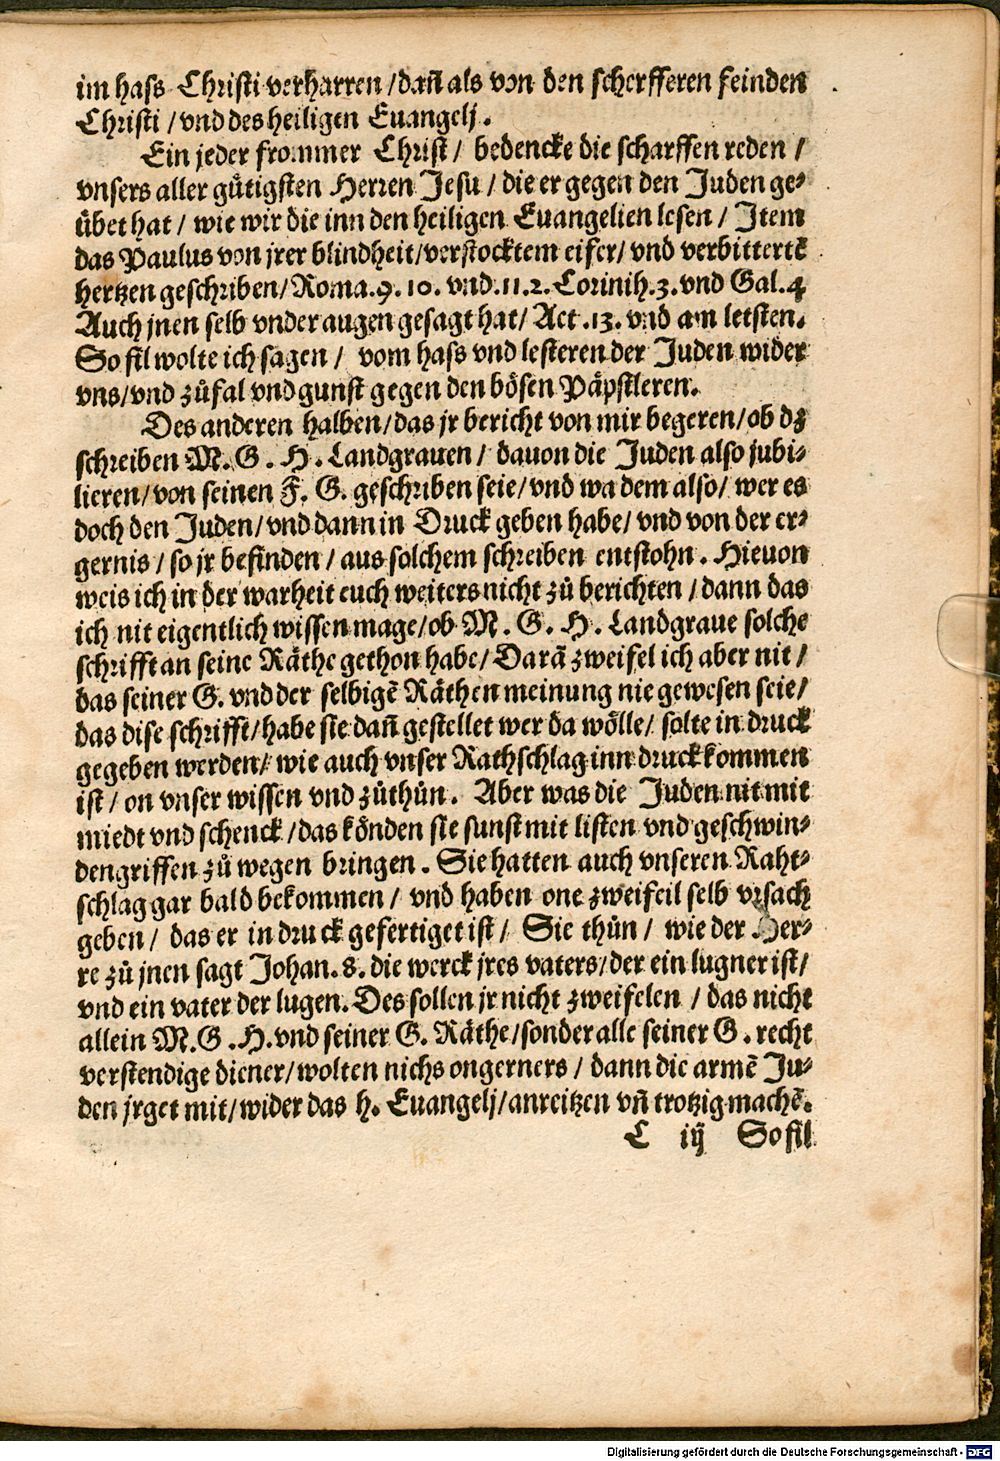 im hass Christi verharren / dañ als von den scherfferen feinden
Christi / vnd des heiligen Euangelj.
Ein jeder frommer Christ / bedencke die scharffen reden /
vnsers aller gütigsten Herren Jesu / die er gegen den Juden ge⸗
übet hat / wie wir die inn den heiligen Euangelien lesen / Item
das Paulus von jrer blindheit / verstocktem eifer / vnd verbittertẽ
hertzen geschriben / Roma. 9. 10. vnd. 11. 2. Corinth. 3. vnd Gal. 4
Auch jnen selb vnder augen gesagt hat / Act. 13. vnd am letsten.
So fil wolte ich sagen / vom hass vnd lesteren der Juden wider
vns / vnd zůfal vnd gunst gegen den bösen Päpstleren.
Des anderen halben / das jr bericht von mir begeren / ob dz
schreiben M. G. H. Landgrauen / dauon die Juden also jubi⸗
lieren / von seinen F. G. geschriben seie / vnd wa dem also / wer es
doch den Juden / vnd dann in Druck geben habe / vnd von der er⸗
gernis / so jr befinden / aus solchem schreiben entstohn. Hieuon
weis ich in der warheit euch weiters nicht zů berichten / dann das
ich nit eigentlich wissen mage / ob M. G. H. Landgraue solche
schrifft an seine Räthe gethon habe / Darã zweifel ich aber nit /
das seiner G. vnd der selbigẽ Räthen meinung nie gewesen seie /
das dise schrifft / habe sie dañ gestellet wer da wölle / solte in druck
gegeben werden / wie auch vnser Rathschlag inn druck kommen
ist / on vnser wissen vnd zůthůn. Aber was die Juden nit mit
miedt vnd schenck / das könden sie sunst mit listen vnd geschwin⸗
dengriffen zů wegen bringen. Sie hatten auch vnseren Raht⸗
schlag gar bald bekommen / vnd haben one zweifeil selb vrsach
geben / das er in druck gefertiget ist / Sie thůn / wie der Her⸗
re zů jnen sagt Johan. 8. die werck jres vaters / der ein lugner ist /
vnd ein vater der lugen. Des sollen jr nicht zweifelen / das nicht
allein M. G. H. vnd seiner G. Räthe / sonder alle seiner G. recht
verstendige diener / wolten nichs ongerners / dann die armẽ Ju⸗
den jrget mit / wider das h. Euangelj / anreitzen vñ trotzig machẽ.
C iij So fil
Digitalisierung gefördert durch die Deutsche Forschungsgemeinschaft - DFG